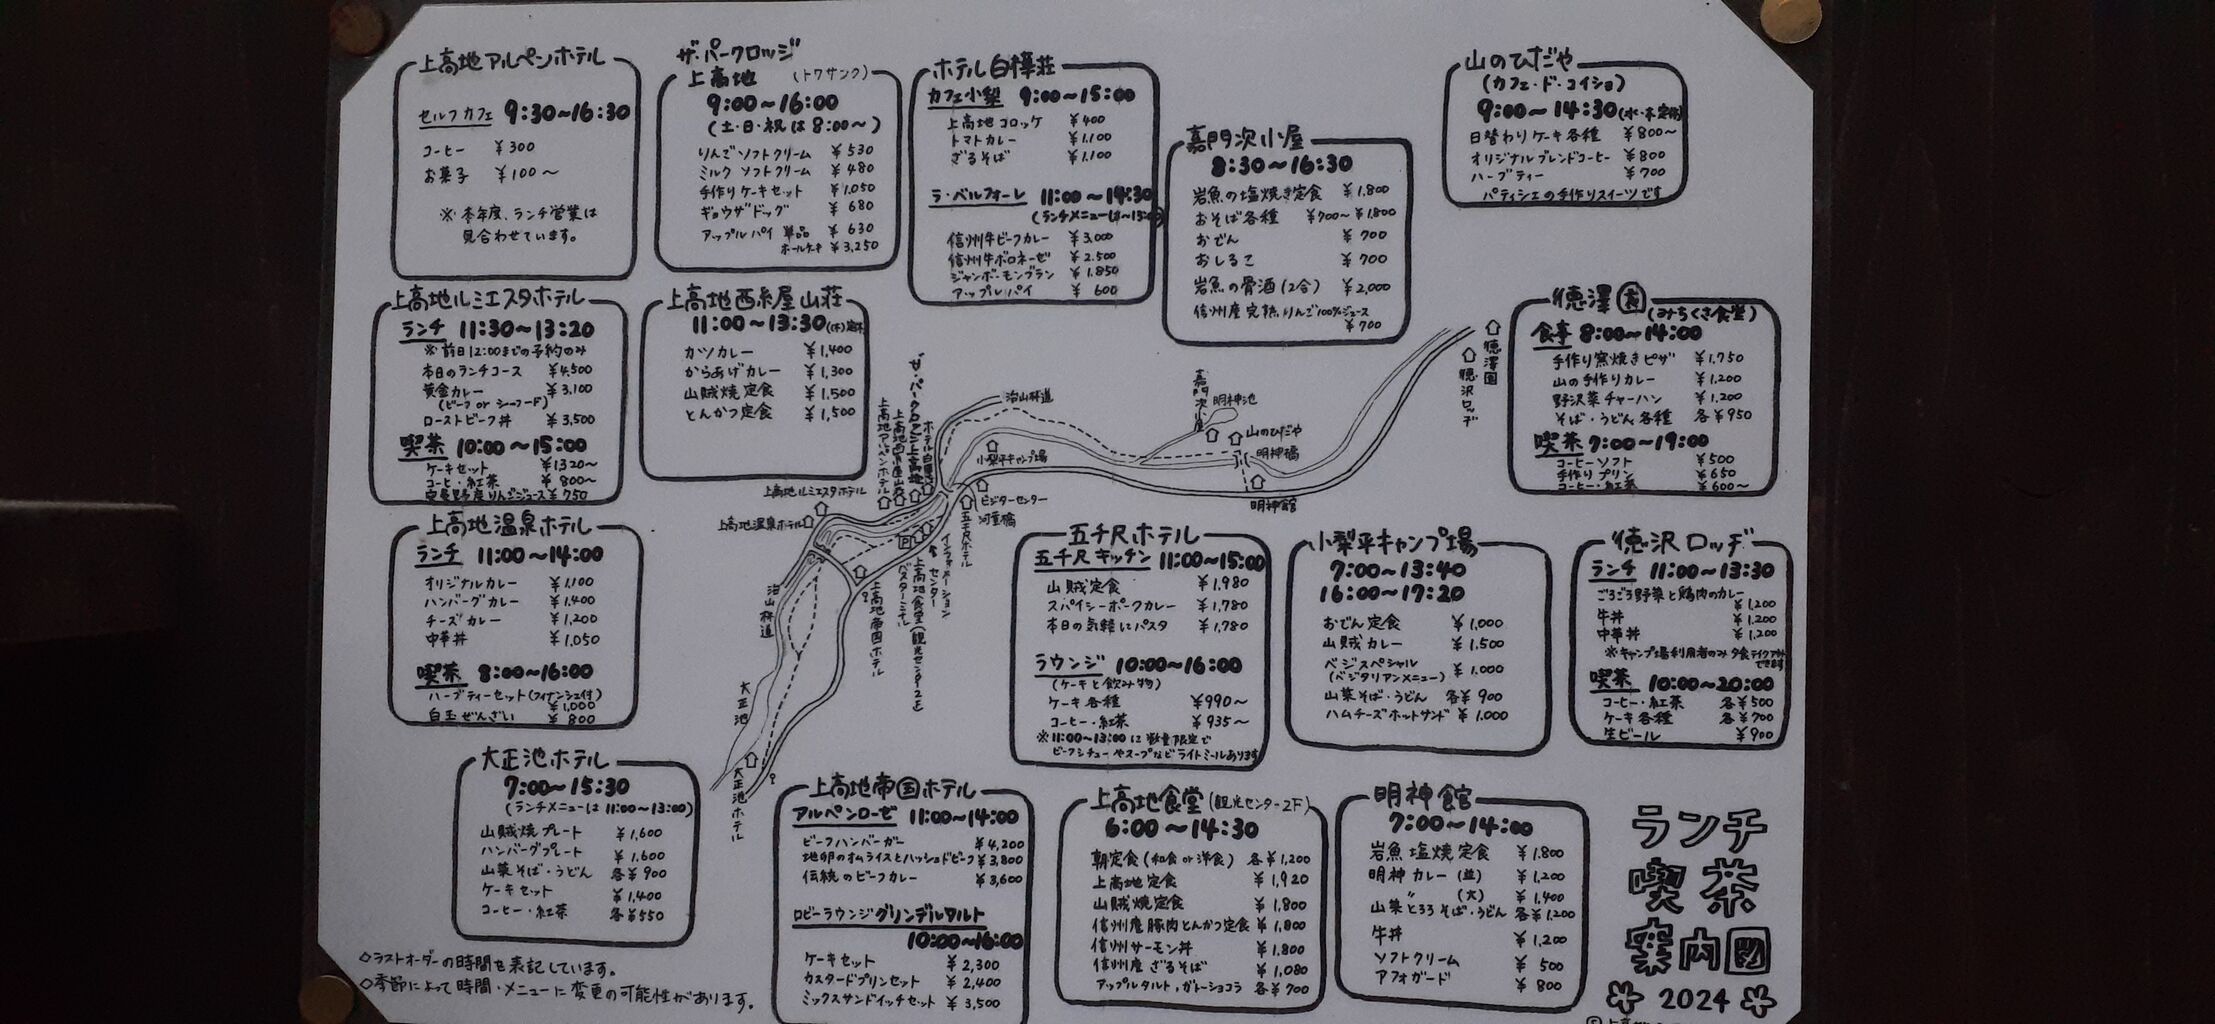 上高地アルペンホテル
セルフカフェ 9:30~16:30
コーヒー ¥300
お菓子 ¥100~
※ 本年度、ランチ営業は
見合わせています。
ザ・パークロッジ
上高地 (トワサンク)
9:00~16:00
(土・日・祝は8:00~)
りんごソフトクリーム ¥530
ミルクソフトクリーム ¥480
手作りケーキセット ¥1,050
ギョウザドッグ ¥680
アップルパイ 単品 ¥630
ホールケーキ ¥3,250
ホテル白樺荘
カフェ小梨 9:00~15:00
上高地コロッケ ¥400
トマトカレー ¥1,100
ざるそば ¥1,100
ラ・ベルフォーレ 11:00~14:30
(ランチメニューは~13:00)
信州牛ビーフカレー ¥3,000
信州牛ボロネーゼ ¥2,500
ジャンボ・モンブラン ¥1,850
アップルパイ ¥600
嘉門次小屋
8:30~16:30
岩魚の塩焼き定食 ¥1,800
おそば各種 ¥700~¥1,800
おでん ¥700
おしるこ ¥700
岩魚の骨酒(2合) ¥2,000
信州産完熟りんご100%ジュース
¥700
山のひだや
(カフェ・ド・コイショ)
9:00~14:30(水・木定休)
日替わりケーキ各種 ¥800~
オリジナルブレンドコーヒー ¥800
ハーブティー ¥700
パティシエの手作りスイーツです
上高地ルミエスタホテル
ランチ 11:30~13:20
※前日12:00までの予約のみ
本日のランチコース ¥4,500
黄金カレー ¥3,100
(ビーフ or シーフード)
ローストビーフ丼 ¥3,500
喫茶 10:00~15:00
ケーキセット ¥1,320~
コーヒー・紅茶 ¥800~
安曇野産りんごジュース ¥750
上高地西糸屋山荘
11:00~13:30(休)定休
カツカレー ¥1,400
からあげカレー ¥1,300
山賊焼定食 ¥1,500
とんかつ定食 ¥1,500
徳澤園(みちくさ食堂)
食事 8:00~14:00
手作り窯焼きピザ ¥1,750
山の手作りカレー ¥1,200
野沢菜チャーハン ¥1,200
そば・うどん各種 各¥950
喫茶 7:00~19:00
コーヒーソフト ¥500
手作りプリン ¥650
コーヒー・紅茶 ¥600~
上高地温泉ホテル
ランチ 11:00~14:00
オリジナルカレー ¥1,100
ハンバーグカレー ¥1,400
チーズカレー ¥1,200
中華丼 ¥1,050
喫茶 8:00~16:00
ハーブティーセット(フィナンシェ付)
¥1,000
白玉ぜんざい ¥800
ザ・パークロッジ上高地
ホテル白樺荘
上高地西糸屋山荘
上高地アルペンホテル
上高地ルミエスタホテル
上高地温泉ホテル
治山林道
小梨平キャンプ場
ビジターセンター
河童橋
五千尺ホテル
嘉門次小屋
明神池
山のひだや
明神橋
明神館
徳澤園
徳沢ロッヂ
インフォメーションセンター
バスターミナル
上高地食堂(観光センター2F)
上高地帝国ホテル
治山林道
大正池
大正池ホテル
五千尺ホテル
五千尺キッチン 11:00~15:00
山賊定食 ¥1,980
スパイシーポークカレー ¥1,780
本日の気軽にパスタ ¥1,780
ラウンジ 10:00~16:00
(ケーキと飲み物)
ケーキ各種 ¥990~
コーヒー・紅茶 ¥935~
※11:00~13:00に数量限定で
ビーフシチューやスープなどライトミールあります
小梨平キャンプ場
7:00~13:40
16:00~17:20
おでん定食 ¥1,000
山賊カレー ¥1,500
ベジスペシャル
(ベジタリアンメニュー) ¥1,000
山菜そば・うどん 各¥900
ハムチーズホットサンド ¥1,000
徳沢ロッヂ
ランチ 11:00~13:30
ごろごろ野菜と鶏肉のカレー
¥1,200
牛丼 ¥1,200
中華丼 ¥1,200
※キャンプ場利用者のみ夕食テイクアウトできます
喫茶 10:00~20:00
コーヒー・紅茶 各¥500
ケーキ各種 各¥700
生ビール ¥900
大正池ホテル
7:00~15:30
(ランチメニューは11:00~13:00)
山賊焼プレート ¥1,600
ハンバーグプレート ¥1,600
山菜そば・うどん 各¥900
ケーキセット ¥1,400
コーヒー・紅茶 各¥550
上高地帝国ホテル
アルペンローゼ 11:00~14:00
ビーフハンバーガー ¥4,200
地卵のオムライスとハッシュドビーフ ¥3,800
伝統のビーフカレー ¥3,600
ロビーラウンジグリンデルワルト
10:00~16:00
ケーキセット ¥2,300
カスタードプリンセット ¥2,400
ミックスサンドイッチセット ¥3,500
上高地食堂(観光センター2F)
6:00~14:30
朝定食(和食or洋食) 各¥1,200
上高地定食 ¥1,920
山賊焼定食 ¥1,800
信州産豚肉とんかつ定食 ¥1,800
信州サーモン丼 ¥1,800
信州産ざるそば ¥1,080
アップルタルト,ガトーショコラ 各¥700
明神館
7:00~14:00
岩魚塩焼定食 ¥1,800
明神カレー(並) ¥1,200
〃 (大) ¥1,400
山菜とろろそば・うどん 各¥1,200
牛丼 ¥1,200
ソフトクリーム ¥500
アフォガード ¥800
ランチ
喫茶
案内図
2024
◇ラストオーダーの時間を表記しています。
◇季節によって時間・メニューに変更の可能性があります。